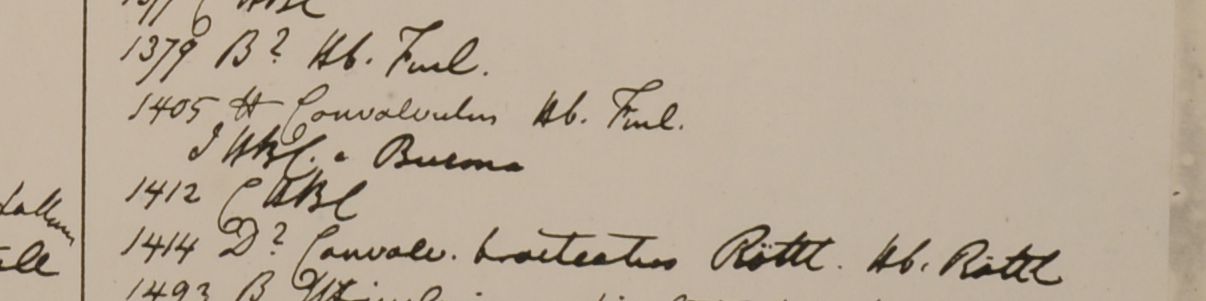 1379 B? Hb. Finl.
1405 H Convolvulus Hb. Finl.
I HBC. e Burma
1412 C HBC
1414 D? Convolv. bracteatus Röttl. Hb. Röttl
1493 B